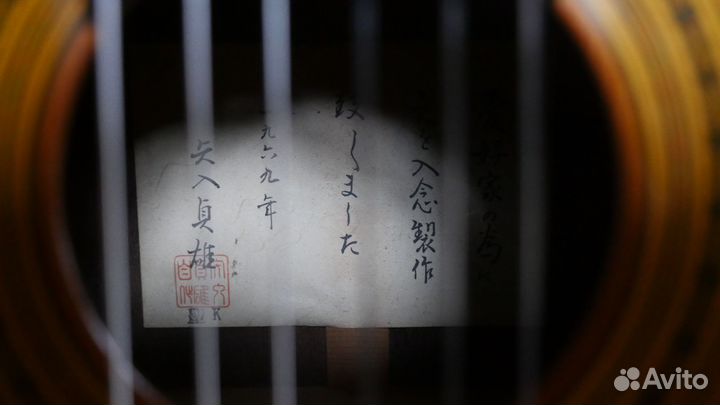 好家の為に
を入念製作
致しました
一九六九年
矢入貞雄
K
Avito